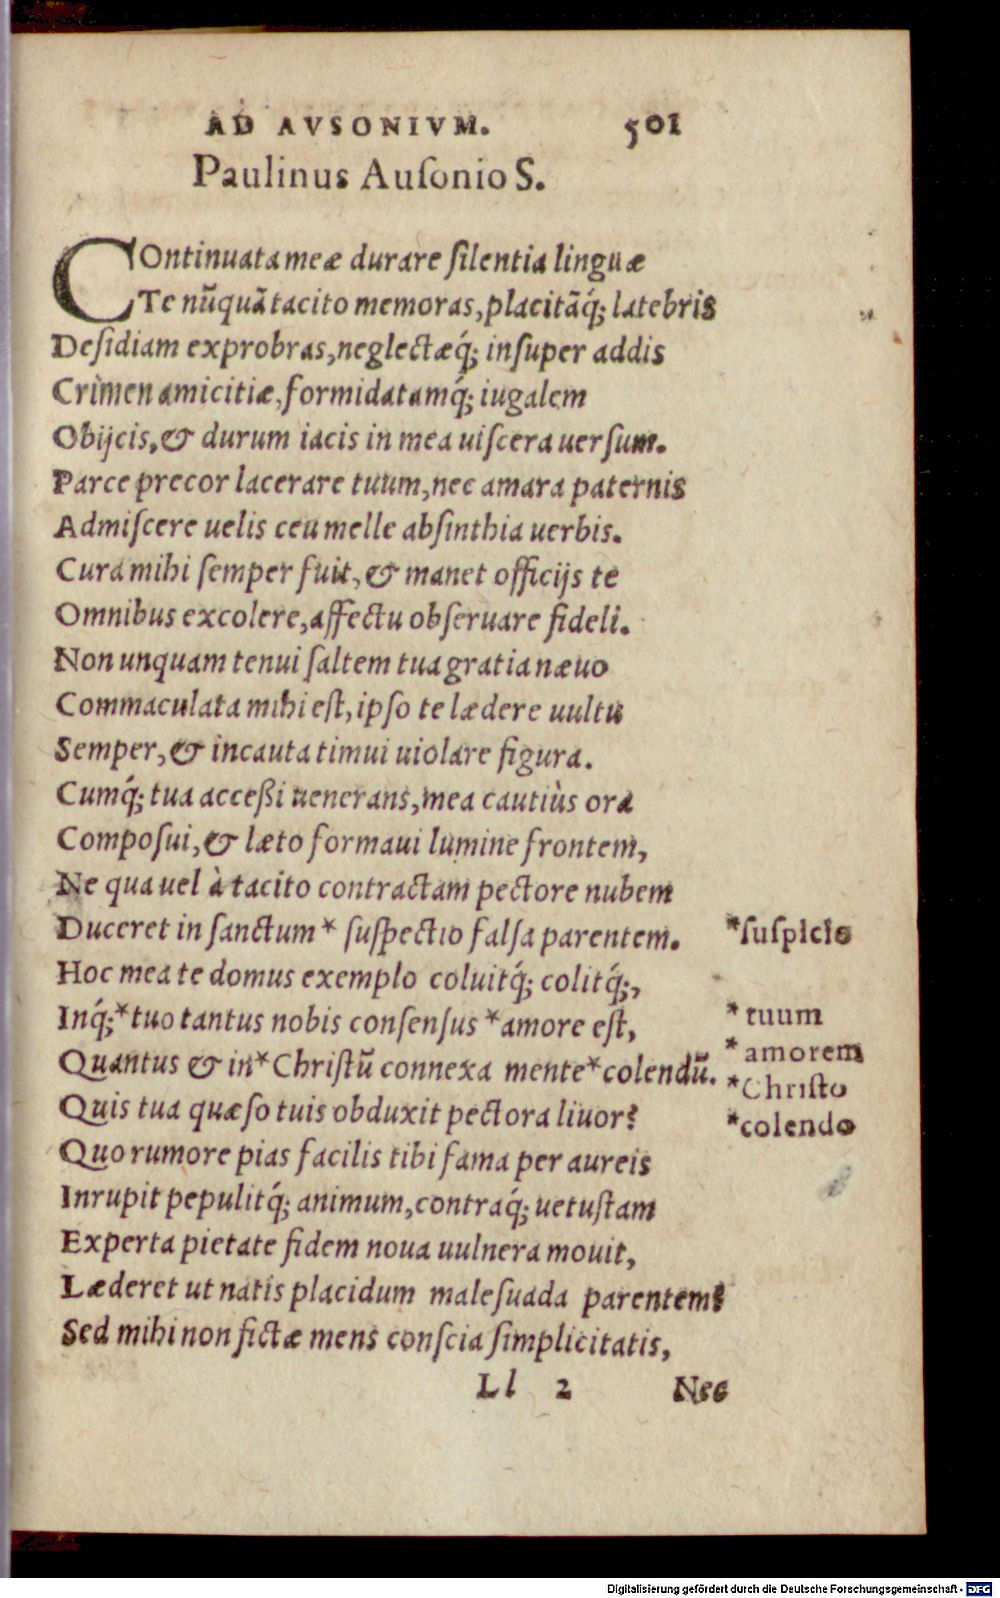 AD AVSONIVM. 501
Paulinus Auſonio S.
COntinuata meæ durare ſilentia linguæ
Te nũquã tacito memoras, placitãq́; latebris
Deſidiam exprobras, neglectæq́; inſuper addis
Crimen amicitiæ, formidatamq́; iugalem
Obijcis, & durum iacis in mea uiſcera uerſum.
Parce precor lacerare tuum, nec amara paternis
Admiſcere uelis ceu melle abſinthia uerbis.
Cura mihi ſemper fuit, & manet officijs te
Omnibus excolere, affectu obſeruare fideli.
Non unquam tenui ſaltem tua gratia næuo
Commaculata mihi eſt, ipſo te lædere uultu
Semper, & incauta timui uiolare figura.
Cumq́; tua acceßi uenerans, mea cautiùs ora
Compoſui, & læto formaui lumine frontem,
Ne qua uel à tacito contractam pectore nubem
Duceret in ſanctum * ſuſpectio falſa parentem. *ſuſpicio
Hoc mea te domus exemplo coluitq́; colitq́;,
Inq́; *tuo tantus nobis conſenſus *amore eſt, * tuum
Quantus & in *Chriſtũ connexa mente *colendũ. * amorem
*Chriſto
Quis tua quæſo tuis obduxit pectora liuor? *colendo
Quo rumore pias facilis tibi fama per aureis
Inrupit pepulitq́; animum, contraq́; uetuſtam
Experta pietate fidem noua uulnera mouit,
Læderet ut natis placidum maleſuada parentem?
Sed mihi non fictæ mens conſcia ſimplicitatis,
Ll 2 Nec
Digitalisierung gefördert durch die Deutsche Forschungsgemeinschaft - DFG